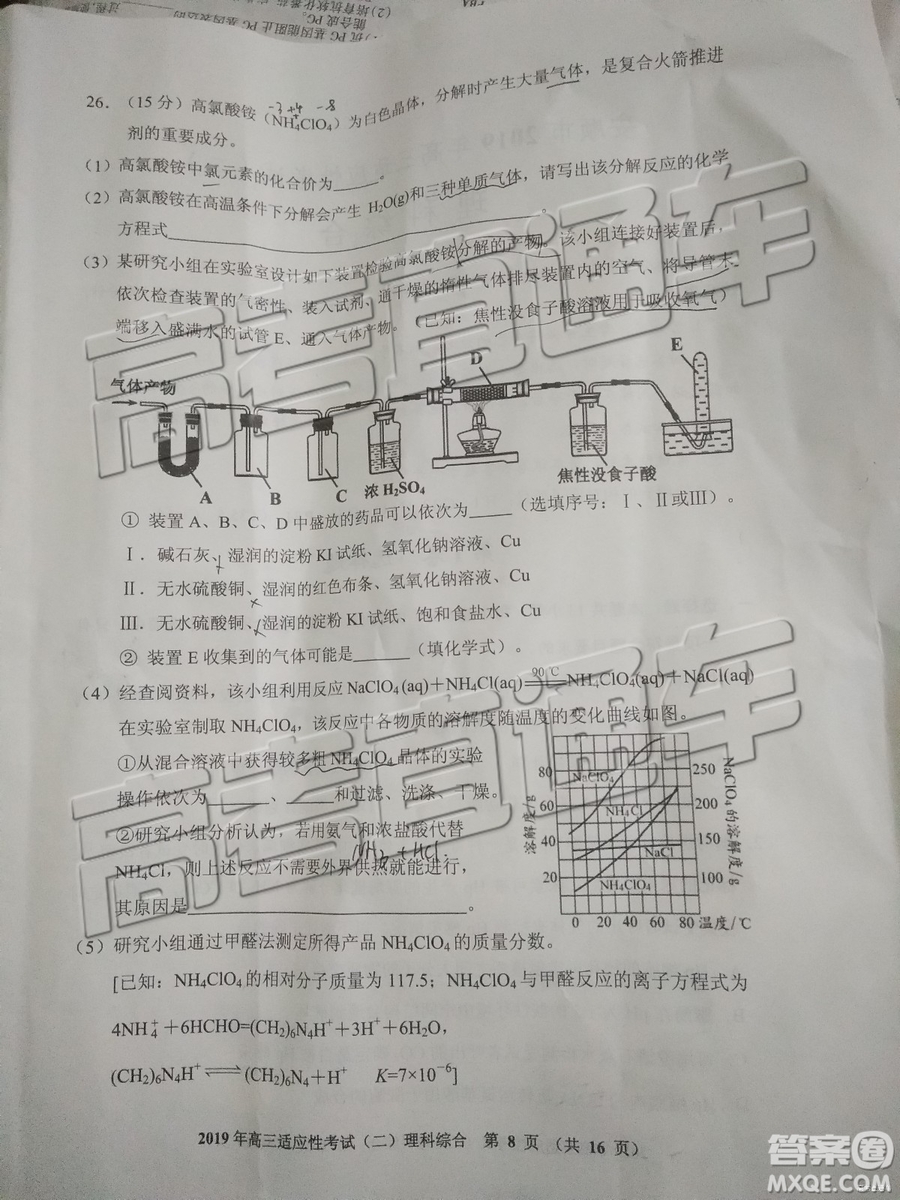 26．（15 分）高氯酸铵（NH₄ClO₄）为白色晶体，分解时产生大量气体，是复合火箭推进
-3 +4 -8
剂的重要成分。
（1）高氯酸铵中氯元素的化合价为_____。
（2）高氯酸铵在高温条件下分解会产生 H₂O(g)和三种单质气体，请写出该分解反应的化学
方程式_____。
（3）某研究小组在实验室设计如下装置检验高氯酸铵分解的产物。该小组连接好装置后，
依次检查装置的气密性、装入试剂、通干燥的惰性气体排尽装置内的空气、将导管末
端移入盛满水的试管 E、通入气体产物。（已知：焦性没食子酸溶液用于吸收氧气）
气体产物
A
B
C
浓 H₂SO₄
D
焦性没食子酸
E
① 装置 A、B、C、D 中盛放的药品可以依次为_____（选填序号：Ⅰ、Ⅱ或Ⅲ）。
Ⅰ．碱石灰、湿润的淀粉 KI 试纸、氢氧化钠溶液、Cu
Ⅱ．无水硫酸铜、湿润的红色布条、氢氧化钠溶液、Cu
Ⅲ．无水硫酸铜、湿润的淀粉 KI 试纸、饱和食盐水、Cu
② 装置 E 收集到的气体可能是_____（填化学式）。
（4）经查阅资料，该小组利用反应 NaClO₄(aq)＋NH₄Cl(aq)⇌NH₄ClO₄(aq)＋NaCl(aq)
90℃
在实验室制取 NH₄ClO₄，该反应中各物质的溶解度随温度的变化曲线如图。
①从混合溶液中获得较多粗 NH₄ClO₄ 晶体的实验
操作依次为_____、_____和过滤、洗涤、干燥。
②研究小组分析认为，若用氨气和浓盐酸代替
NH₃ + HCl
NH₄Cl，则上述反应不需要外界供热就能进行，
其原因是_____。
溶解度/g
80
60
40
20
NaClO₄
NH₄Cl
NaCl
NH₄ClO₄
250
200
150
100
NaClO₄的溶解度/g
0 20 40 60 80 温度/℃
（5）研究小组通过甲醛法测定所得产品 NH₄ClO₄ 的质量分数。
[已知：NH₄ClO₄ 的相对分子质量为 117.5；NH₄ClO₄ 与甲醛反应的离子方程式为
4NH₄⁺＋6HCHO=(CH₂)₆N₄H⁺＋3H⁺＋6H₂O，
(CH₂)₆N₄H⁺⇌(CH₂)₆N₄＋H⁺ K=7×10⁻⁶]
2019 年高三适应性考试（二）理科综合 第 8 页 （共 16 页）
高考直通车
高考直通车
答案圈
MXQE.COM